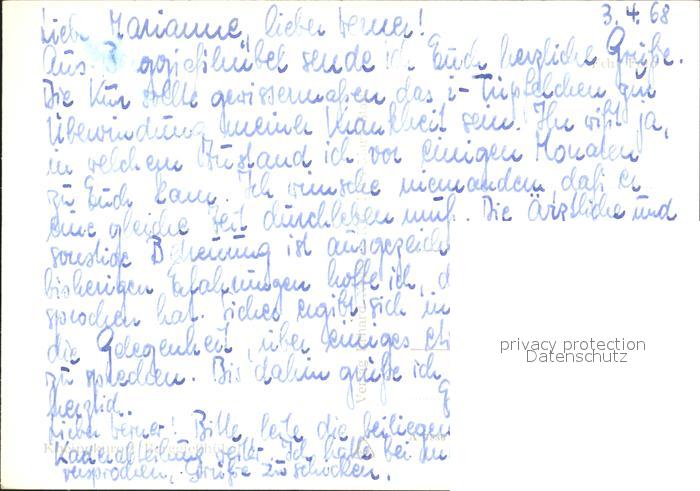 3. 4. 68
Liebe Marianne, lieber Werner!
Aus B ggießhübel sende ich Euch herzliche Grüße.
Die Kur sollte gewissermaßen das i-Tüpfelchen zur
Überwindung meiner Krankheit sein. Ihr wißt ja,
in welchem Zustand ich vor einigen Monaten
zu Euch kam. Ich wünsche niemandem, daß er
eine gleiche Zeit durchleben muß. Die Ärztliche und
sonstige Betreuung ist ausgezeich
bisherigen Erfahrungen hoffe ich, d
sprochen hat. Sicher ergibt sich in
die Gelegenheit, über einiges
zu sprechen. Bis dahin grüße ich
herzlich.
Lieber Werner! Bitte leite die beiliegen
Kaderabteilung weiter. Ich hatte bei
versprochen, Grüße zu schicken.
privacy protection
Datenschutz